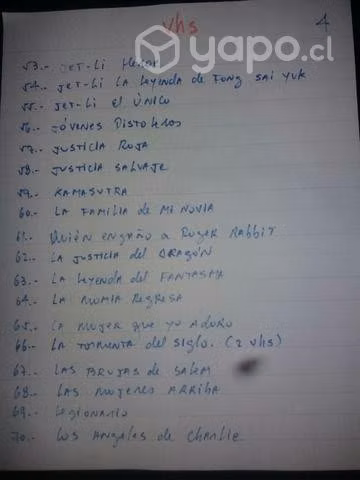 vhs
4
yapo.cl
53.- JET-Li HEROE
54.- JET-Li LA LEYENDA de FONG SAI YUK
55.- JET-Li EL ÚNICO
56.- JÓVENES PISTOLEROS
57.- JUSTICIA ROJA
58.- JUSTICIA SALVAJE
59.- KAMASUTRA
60.- LA FAMILIA de MI NOVIA
61.- Quién engaño a Roger Rabbit
62.- LA JUSTICIA del DRAGÓN
63.- LA LEYENDA del FANTASMA
64.- LA MOMIA REGRESA
65.- LA MUJER que yo ADORO
66.- LA TORMENTA del SIGLO. (2 vhs)
67.- LAS BRUJAS de SALEM
68.- LAS MUJERES ARRIBA
69.- Legionario
70.- LOS ANGELES de CHARLIE